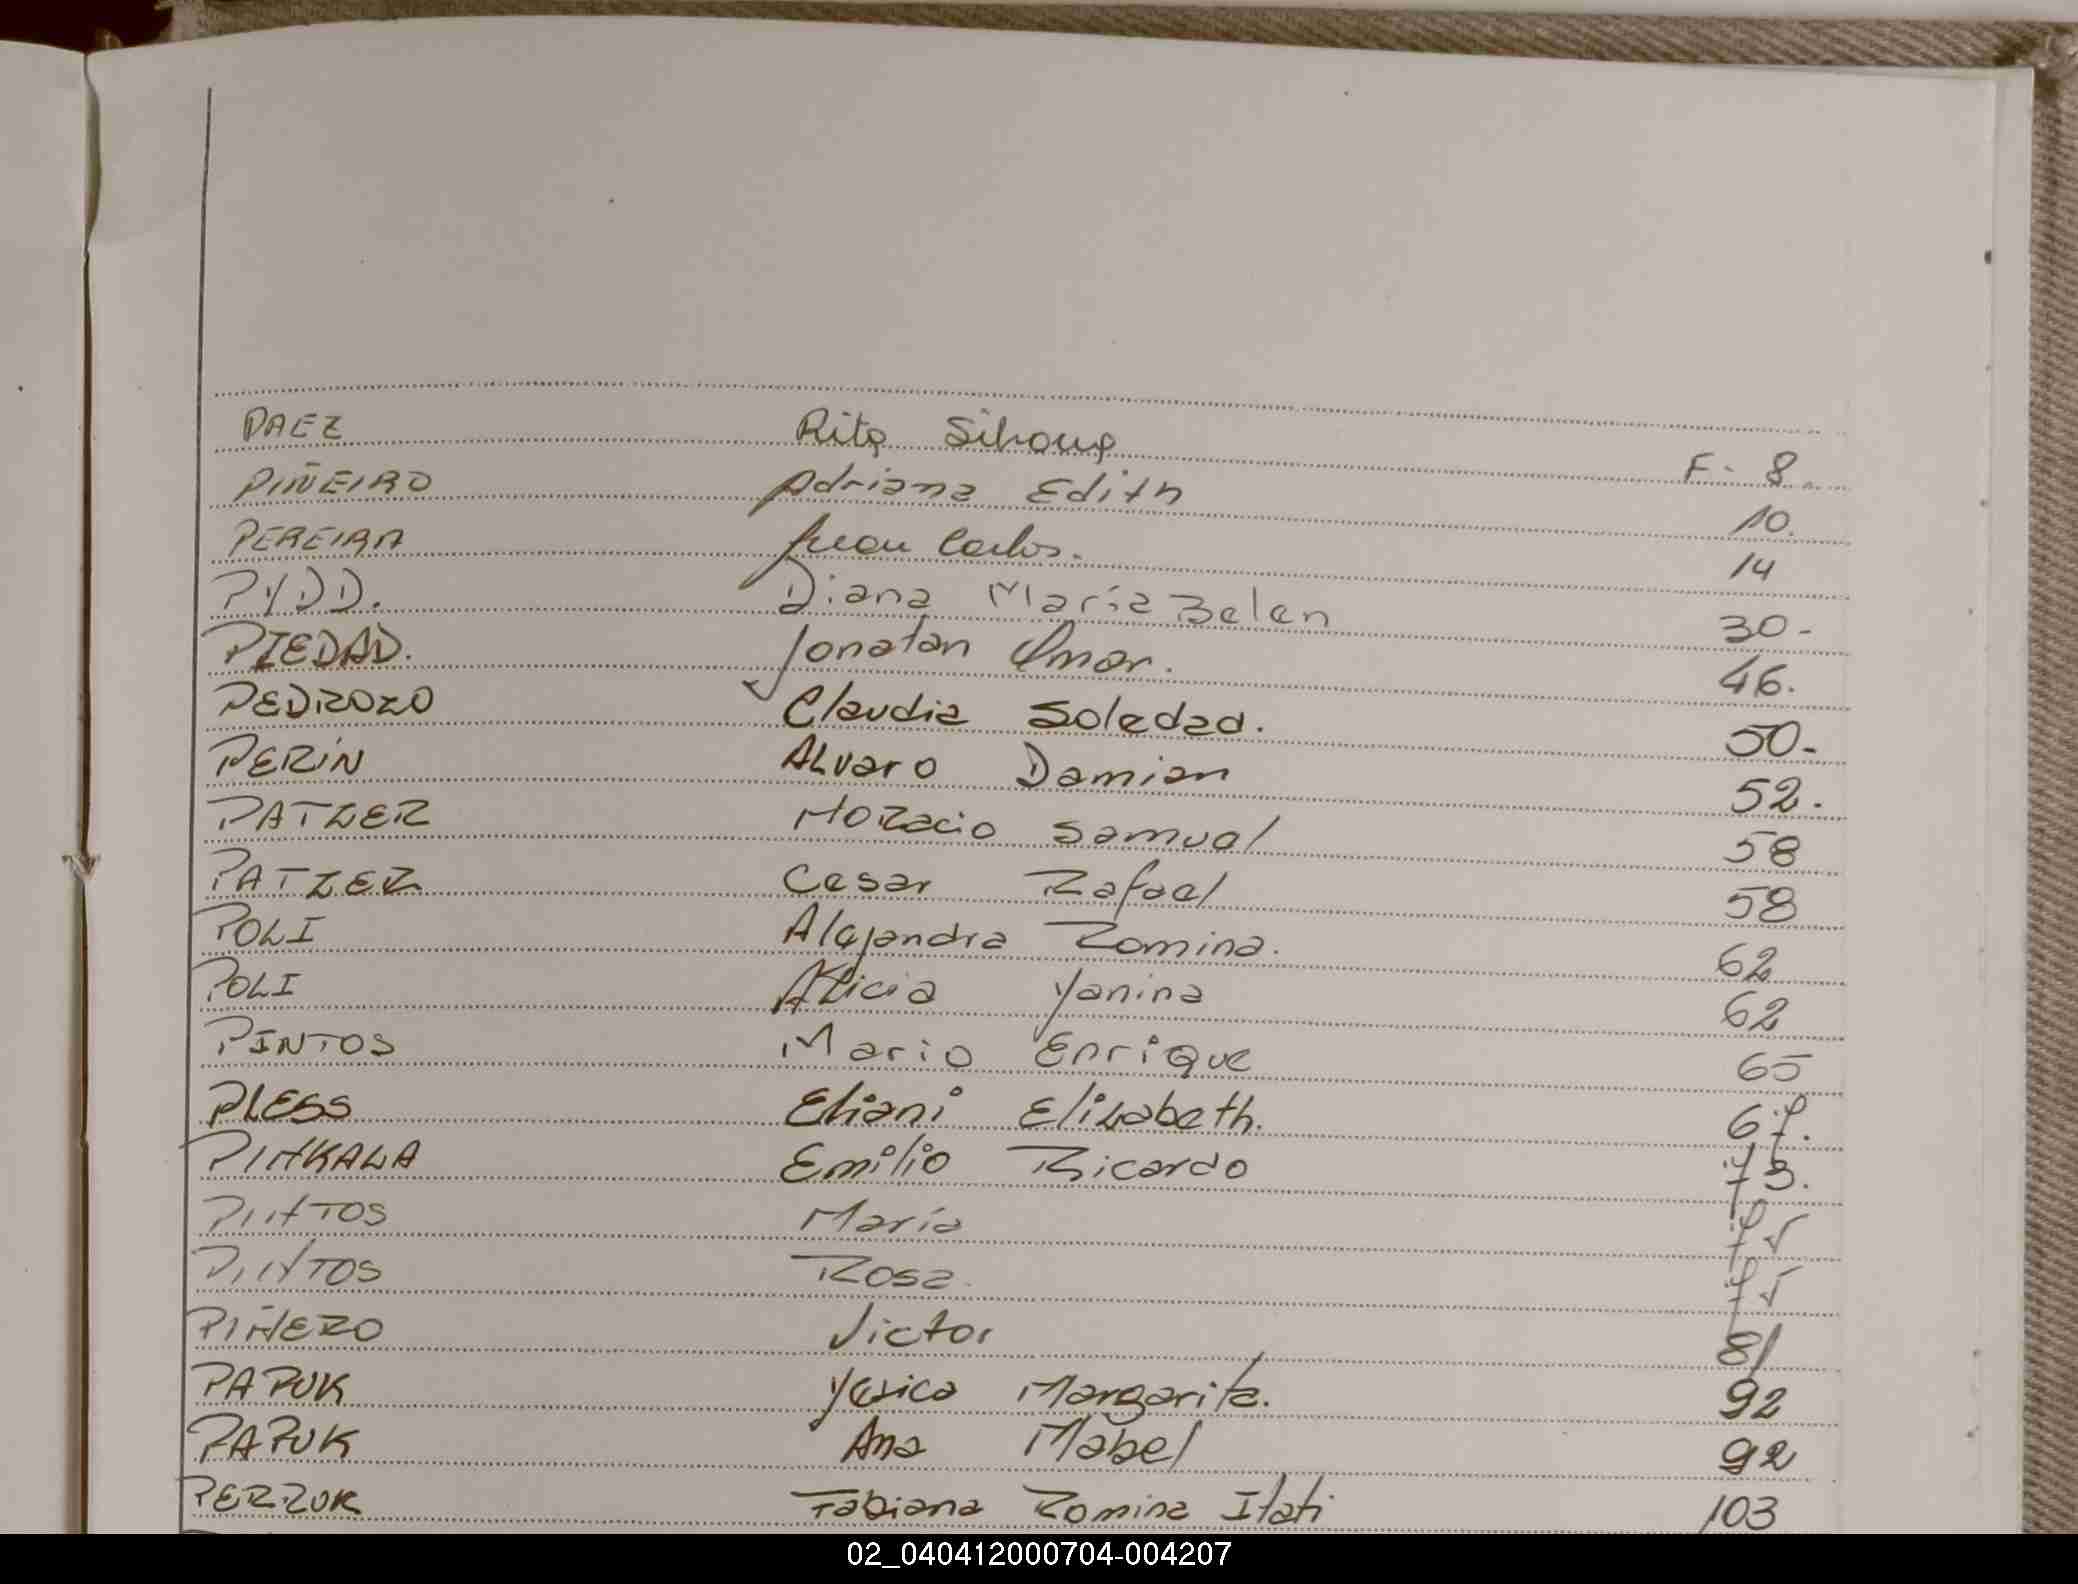 PAEZ Rita Silvana F- 8.
PIÑEIRO Adriana Edith 10.
PEREIRA Juan Carlos. 14
PYDD. Diana María Belen 30-
PIEDAD. Jonatan Omar. 46.
PEDROZO Claudia Soledad. 50-
PERIN Alvaro Damian 52.
PATZER Horacio Samuel 58
PATZER Cesar Rafael 58
POLI Alejandra Romina. 62
POLI Alicia Yanina 62
PINTOS Mario Enrique 65
PLESS Eliani Elizabeth. 67.
PINKALA Emilio Ricardo 73.
PINTOS María 75
PINTOS Rosa. 75
PIÑERO Victor 81
PAPUK Yesica Margarita. 92
PAPUK Ana Mabel 92
PERZUK Fabiana Romina Itati 103
02_040412000704-004207